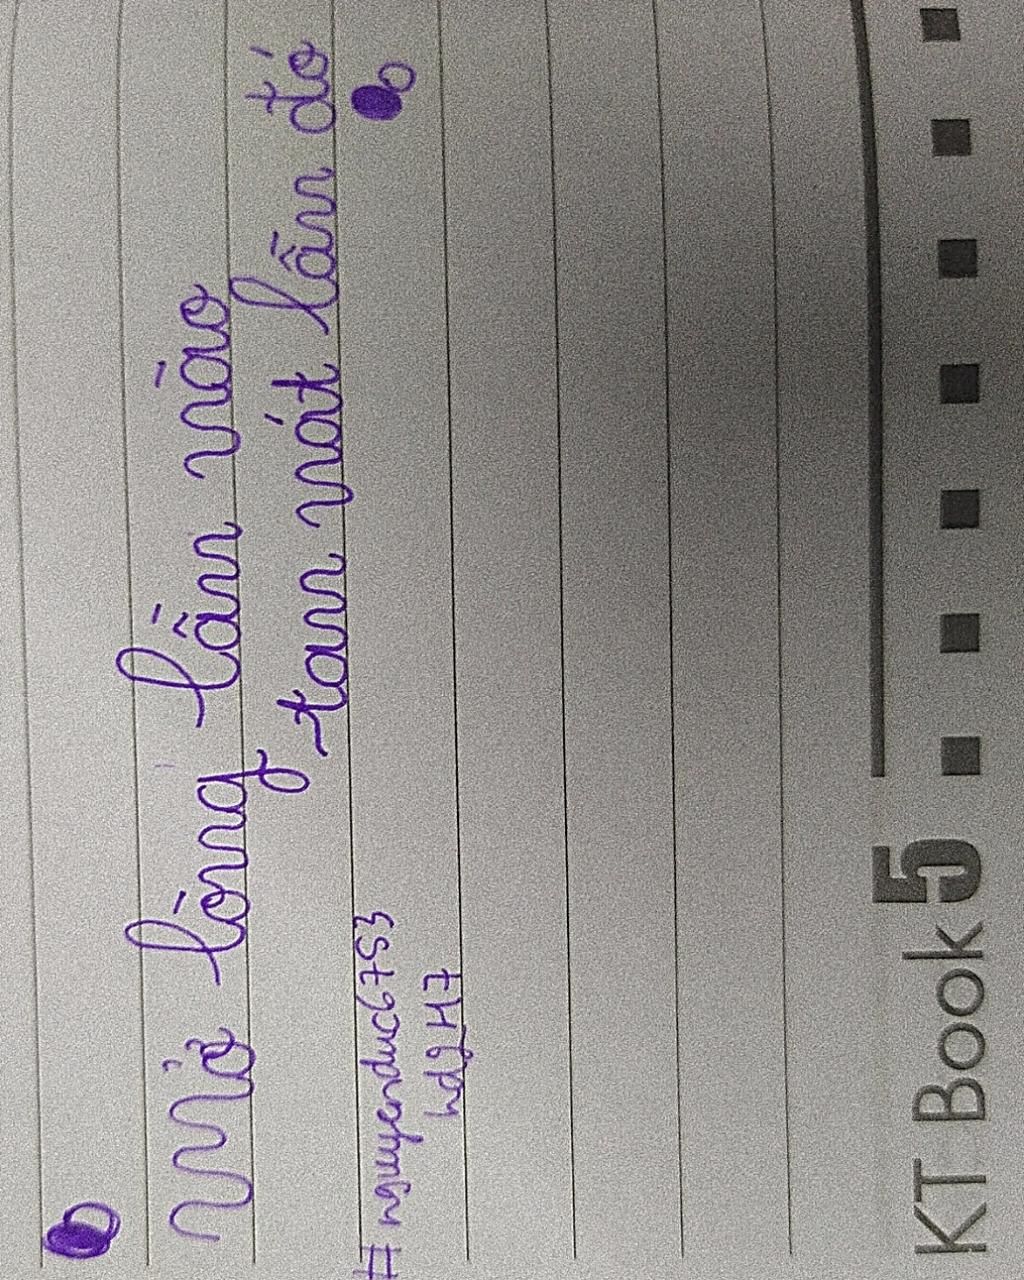 Mở lòng lần nào
tan nát lần đó
# nguyenduc6753
hd2H7
KT Book 5